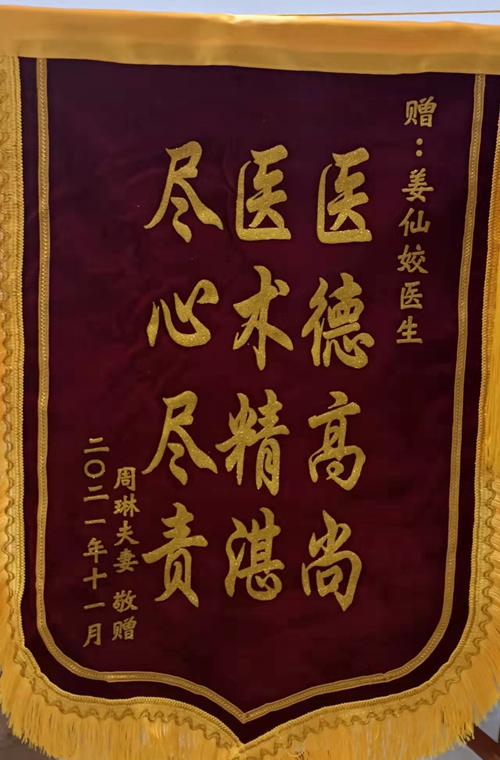 赠：姜仙姣医生
医德高尚
医术精湛
尽心尽责
周琳夫妻 敬赠
二〇二一年十一月